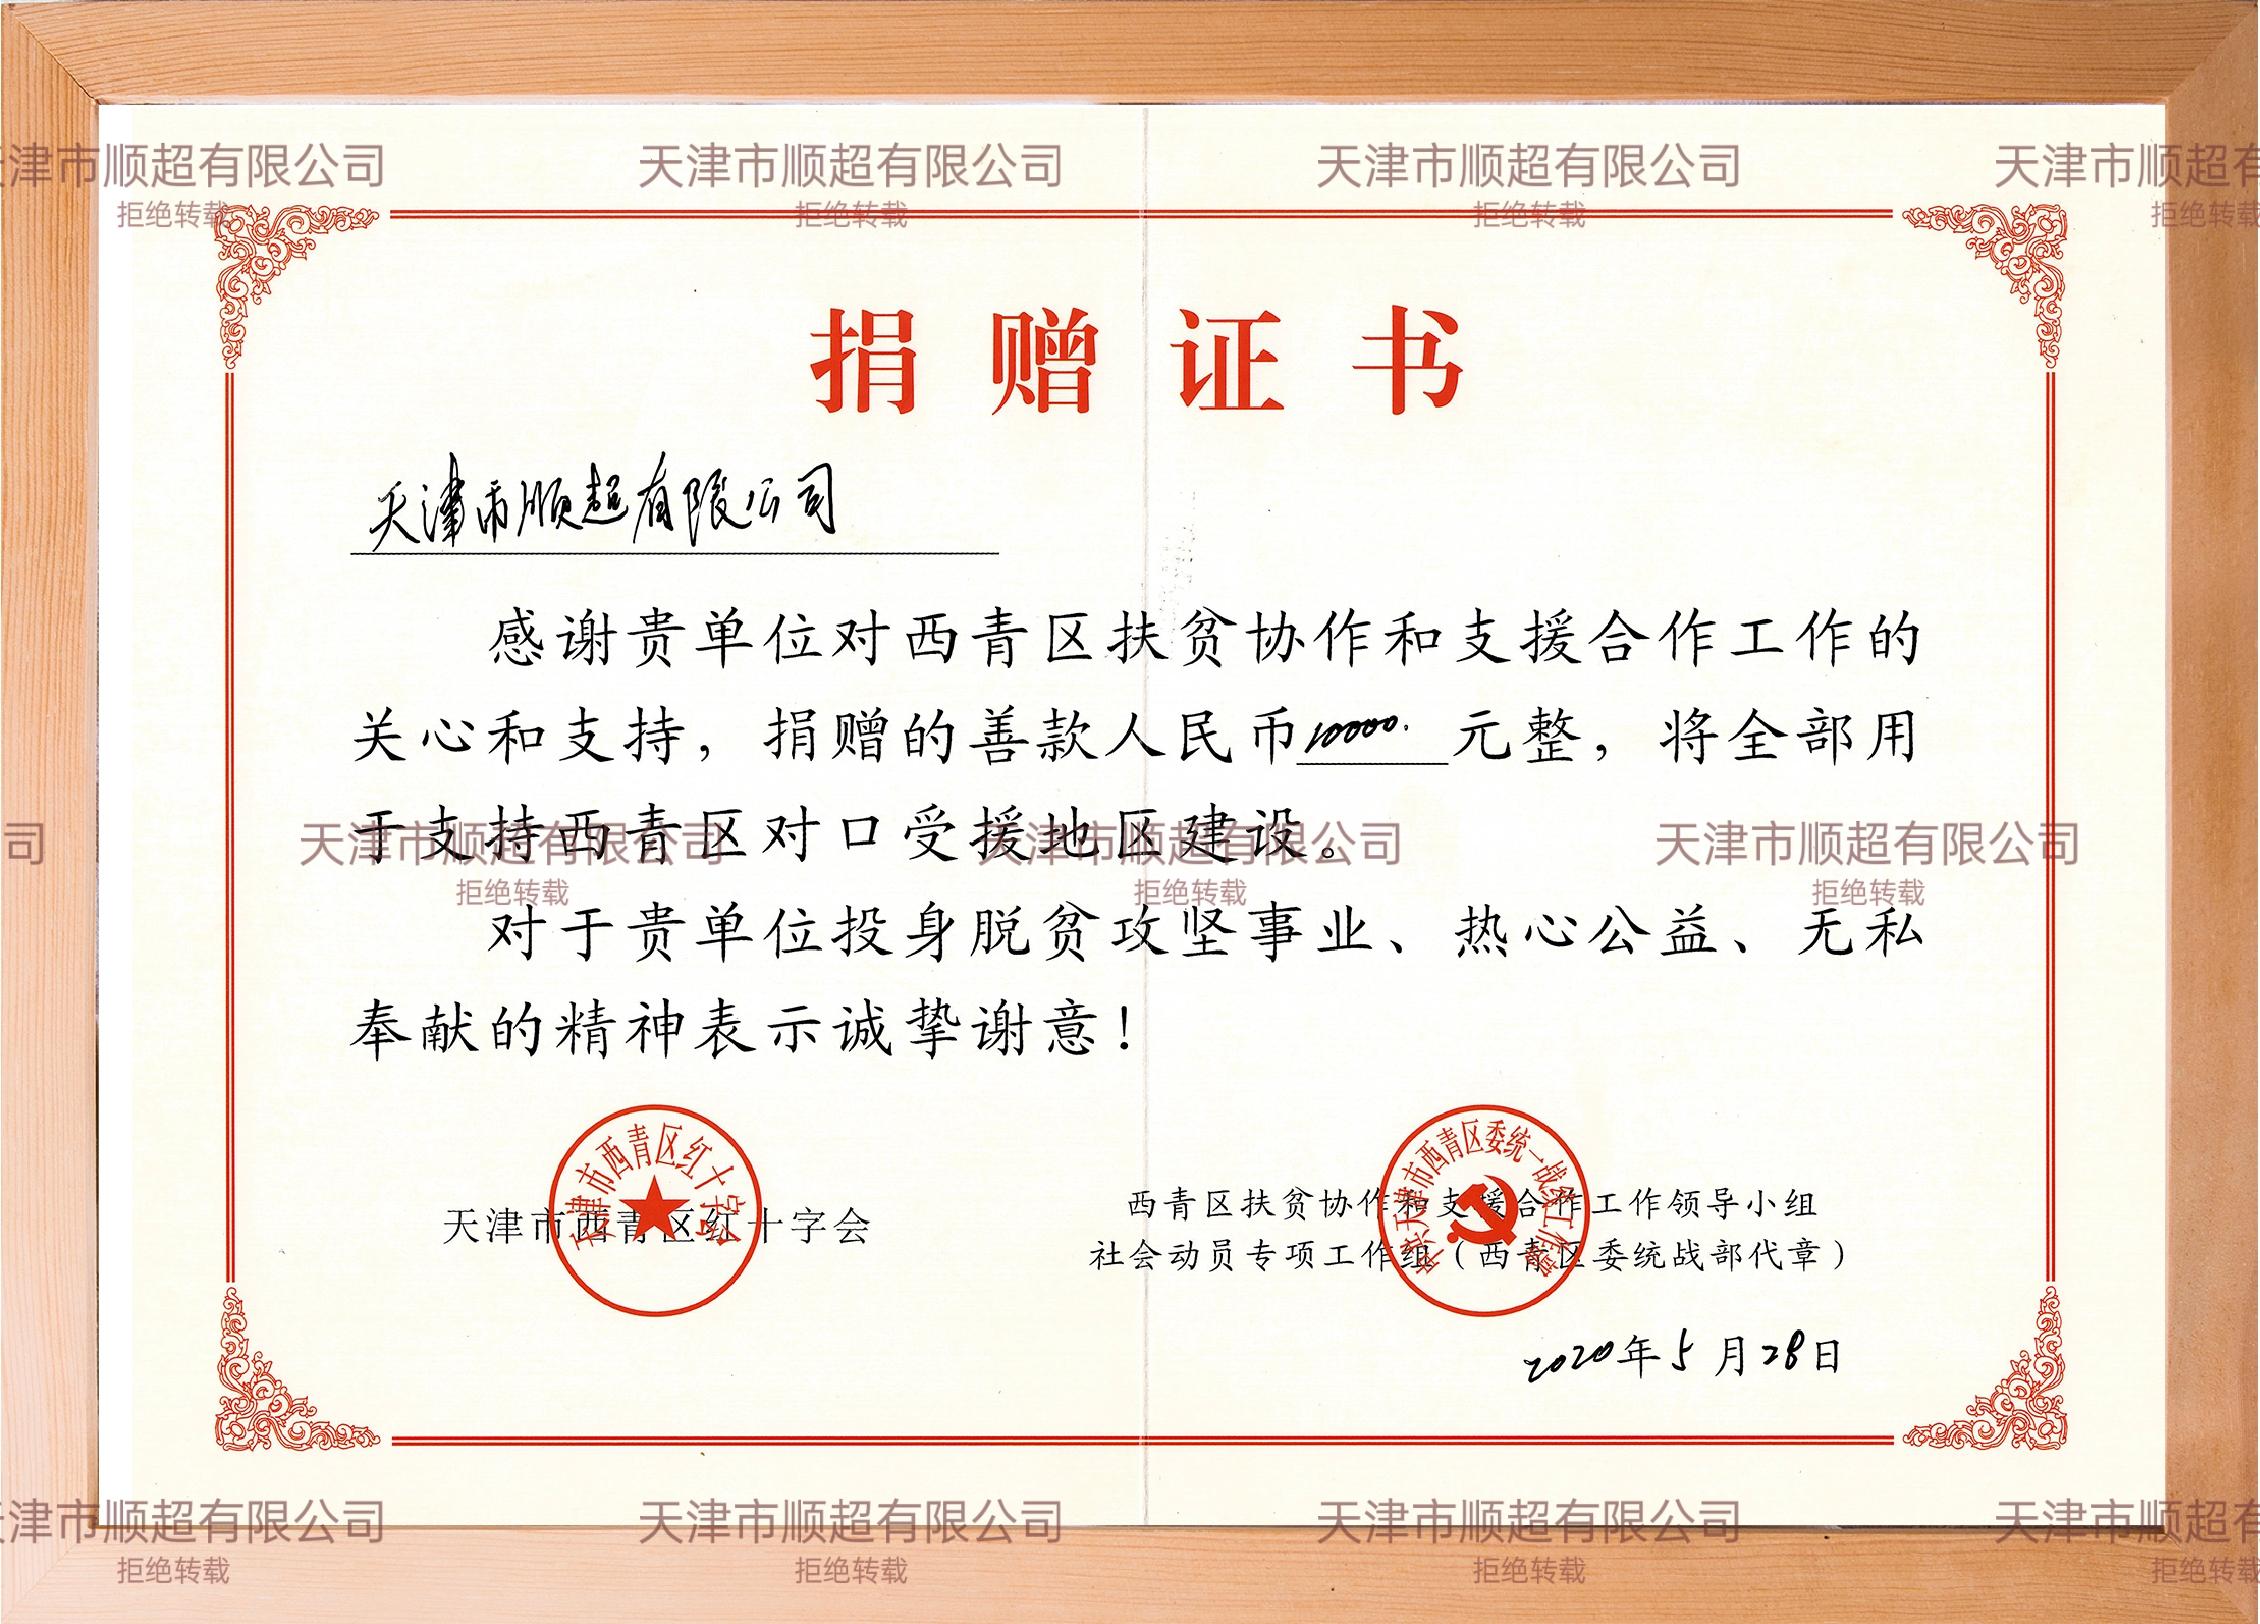 天津市顺超有限公司 天津市顺超有限公司 天津市顺超有限公司 天津市顺超有
拒绝转载 拒绝转载 拒绝转载 拒绝转载
捐赠证书
天津市顺超有限公司
感谢贵单位对西青区扶贫协作和支援合作工作的
关心和支持，捐赠的善款人民币10000.元整，将全部用
于支持西青区对口受援地区建设。
司 天津市顺超有限公司 天津市顺超有限公司 天津市顺超有限公司
拒绝转载 拒绝转载 拒绝转载
对于贵单位投身脱贫攻坚事业、热心公益、无私
奉献的精神表示诚挚谢意！
天津市西青区红十字会
天津市西青区红十字会
中共天津市西青区委统一战线工作部
西青区扶贫协作和支援合作工作领导小组
社会动员专项工作组（西青区委统战部代章）
2020年5月28日
津市顺超有限公司 天津市顺超有限公司 天津市顺超有限公司 天津市顺超有
拒绝转载 拒绝转载 拒绝转载 拒绝转载